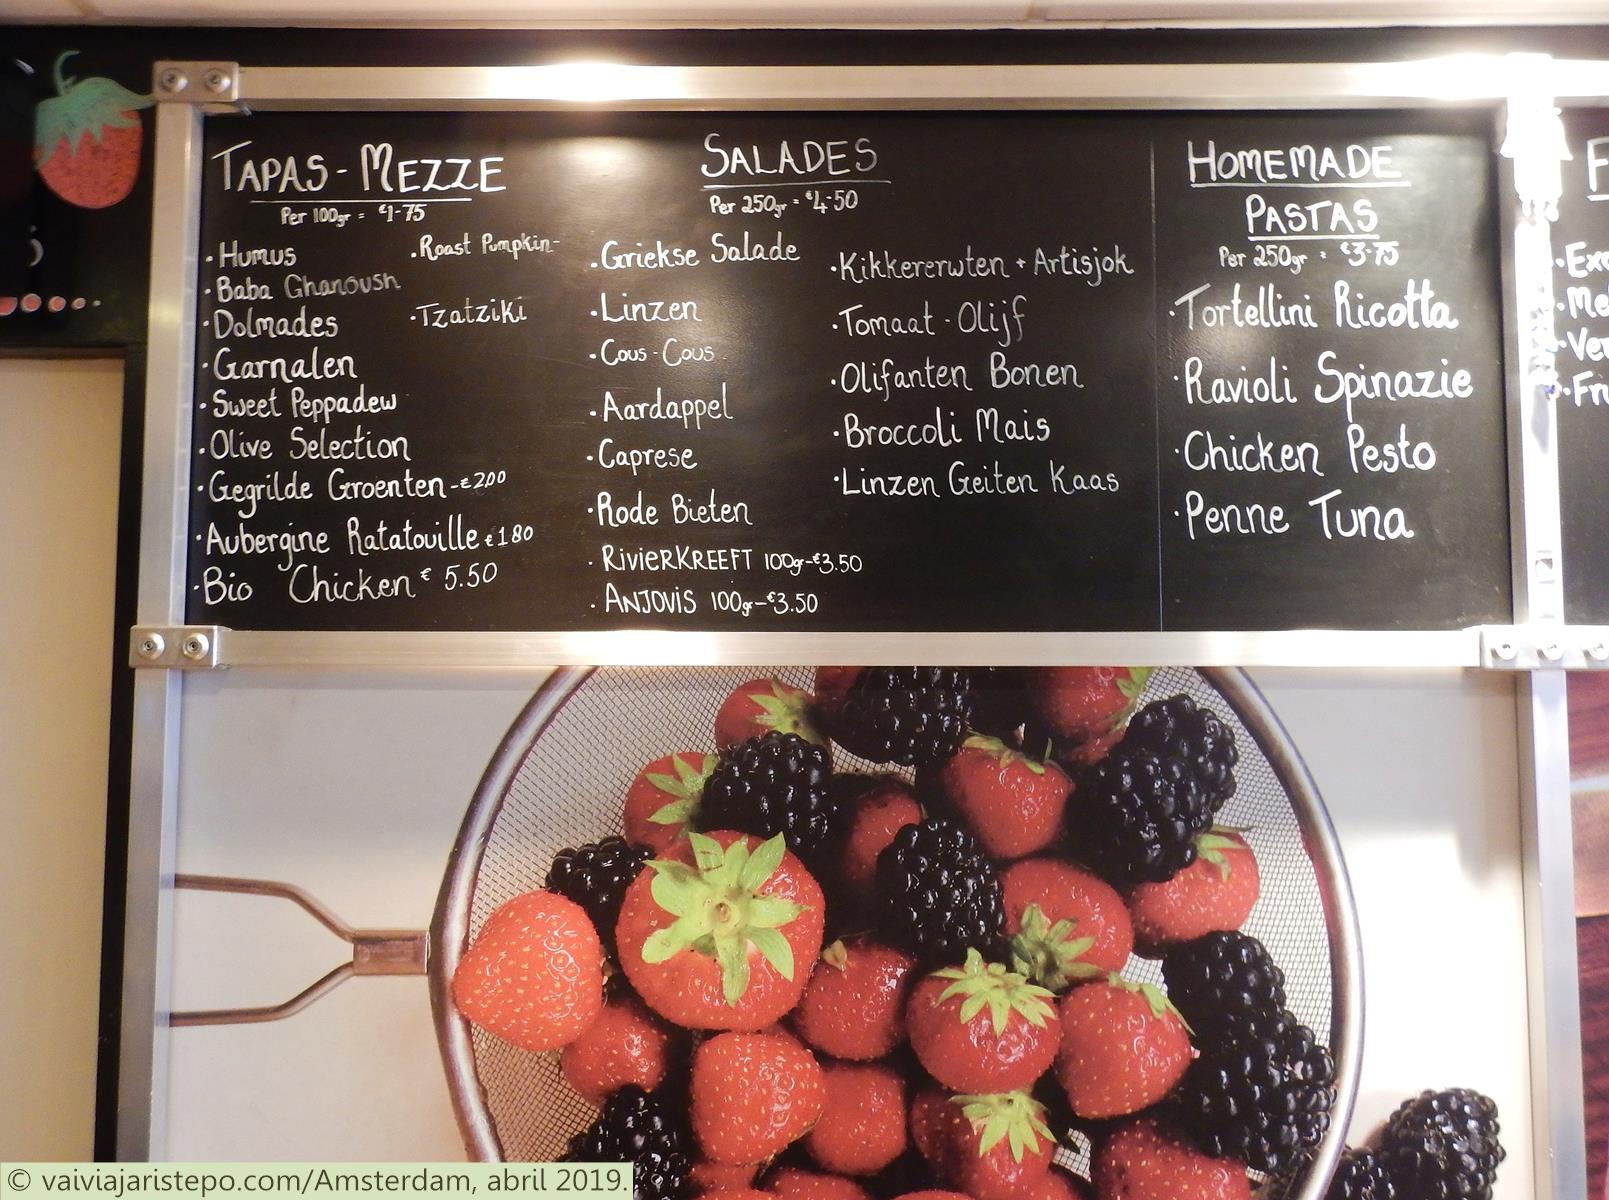 TAPAS - MEZZE
Per 100gr = €1-75
· Humus
· Baba Ghanoush
· Dolmades
· Garnalen
· Sweet Peppadew
· Olive Selection
· Gegrilde Groenten - €2,00
· Aubergine Ratatouille €1.80
· Bio Chicken € 5.50
· Roast Pumpkin-
· Tzatziki
SALADES
Per 250gr = €4-50
· Griekse Salade
· Linzen
· Cous-Cous
· Aardappel
· Caprese
· Rode Bieten
· RIVIERKREEFT 100gr-€3.50
· ANJOVIS 100gr-€3.50
· Kikkererwten + Artisjok
· Tomaat - Olijf
· Olifanten Bonen
· Broccoli Mais
· Linzen Geiten Kaas
HOMEMADE
PASTAS
Per 250gr = €3-75
· Tortellini Ricotta
· Ravioli Spinazie
· Chicken Pesto
· Penne Tuna
© vaiviajaristepo.com/Amsterdam, abril 2019.